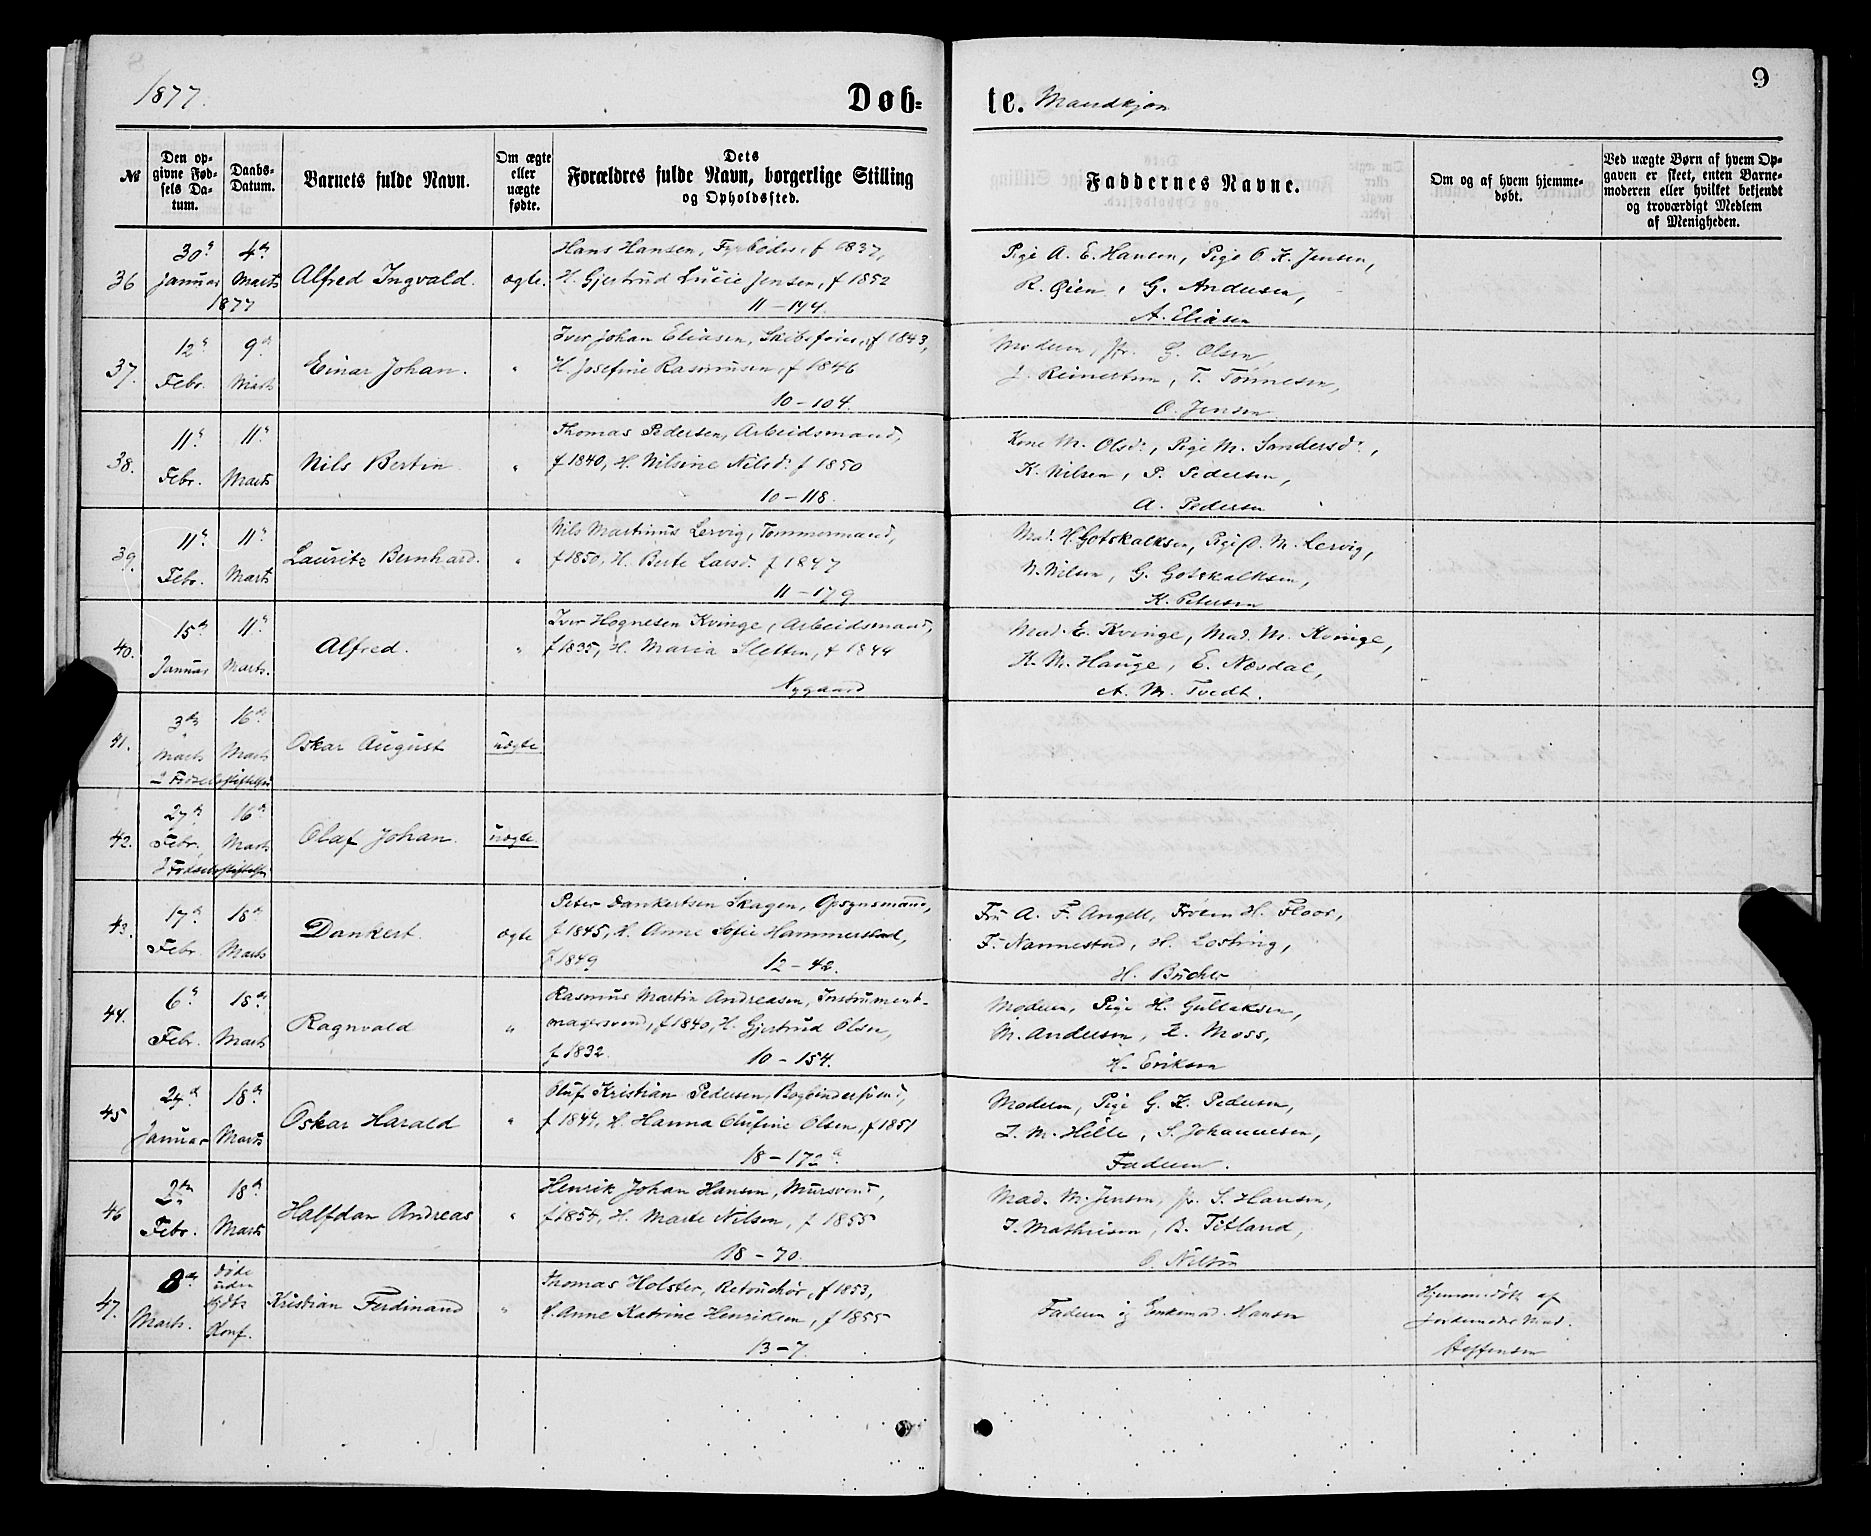 1877.
Døb-
te. Mandkjøn
9
№
Den op-
givne Fød-
sels Da-
tum.
Daabs-
Datum.
Barnets fulde Navn.
Om ægte
eller
uægte
fødte.
Dets
Forældres fulde Navn, borgerlige Stilling
og Opholdssted.
Faddernes Navne.
Om og af hvem hjemme-
døbt.
Ved uægte Børn af hvem Op-
gaven er skeet, enten Barne-
moderen eller hvilket bekjendt
og troværdigt Medlem
af Menigheden.
36
30te
Januar
4de
Marts
1877
Alfred Ingvald.
ægte.
Hans Hansen, Fyrbøder, f 1837,
H. Gjertrud Lucie Jensen, f 1852
11-194
Pige A. E. Hansen, Pige O. K. Jensen,
R. Øien, G. Andersen,
A. Eliasen
37.
12te
Febr.
9de
Marts
Einar Johan.
"
Iver Johan Eliasen, Skibsfører, f 1843,
H. Josefine Rasmusen, f 1846
10-104.
Moderen, Jfr. G. Olsen
J. Reinertsen, T. Tønnesen,
O. Jensen
38.
11te
Febr.
11te
Marts
Nils Bertin
"
Thomas Pedersen, Arbeidsmand,
f 1840, H. Nilsine Nilsd. f 1850
10-118.
Kone M. Olsdr., Pige M. Sandersdr.,
K. Nilsen, P. Pedersen,
A. Pedersen
39.
11te
Febr.
11te
Marts
Lauritz Bernhard.
"
Nils Martinus Lervig, Tømmermand,
f 1850, H. Berte Larsd. f 1847
11-179
Mad. H. Gotskalksen, Pige O. M. Lervig,
N. Nilsen, G. Gotskalksen,
K. Petersen
40.
15de
Januar
11te
Marts.
Alfred.
"
Iver Hognesen Kvinge, Arbeidsmand,
f 1835, H. Maria Sletten, f 1844
Nygaard
Mad. E. Kvinge, Mad. M. Kvinge,
K. M. Hauge, E. Næsdal,
A. M. Tvedt.
41.
3de
Marts
16de
Marts
Oskar August
uægte
i Fødselsstiftelsen
42.
27de
Febr.
16de
Marts
Olaf Johan.
uægte.
i Fødselsstiftelsen
43.
17de
Febr.
18de
Marts
Dankert.
ægte
Peter Dankertsen Skagen, Opsynsmand,
f 1845, H. Anne Sofie Hammerstad,
f 1849
12-42.
Fru A. F. Angell, Frøken H. Floor,
F. Nannestad, H. Losting,
H. Bücher
44.
6te
Febr.
18de
Marts
Ragnvald
"
Rasmus Martin Andreasen, Instrument-
magersvend, f 1840, H. Gjertrud Olsen,
f 1832.
10-154.
Moderen, Pige H. Gullaksen,
M. Andersen, L. Moss,
H. Eriksen
45
24de
Januar
18de
Marts
Oskar Harald
"
Oluf Kristian Pedersen, Bogbindersvend,
f 1844, H. Hanna Olufine Olsen, f 1851
18-172a.
Moderen, Pige G. K. Pedersen,
J. M. Hille, S. Johannesen,
Faderen.
46
2den
Febr.
18de
Marts
Halfdan Andreas
"
Henrik Johan Hansen, Mursvend,
f 1854, H. Marte Nilsen, f 1855
18-70.
Mad. M. Jensen, Jfr. S. Hansen,
J. Mathisen, B. Titland,
O. Nilsen
47.
8de
Marts.
døde
uden
Kirkens
Konf.
Kristian Ferdinand
"
Thomas Holster, Retouchør, f 1853,
H. Anne Katrine Henriksen, f 1855
13-7.
Faderen og Enkemad. Hansen
Hjemmedøbt af
Jordemoder Mad.
Steffensen